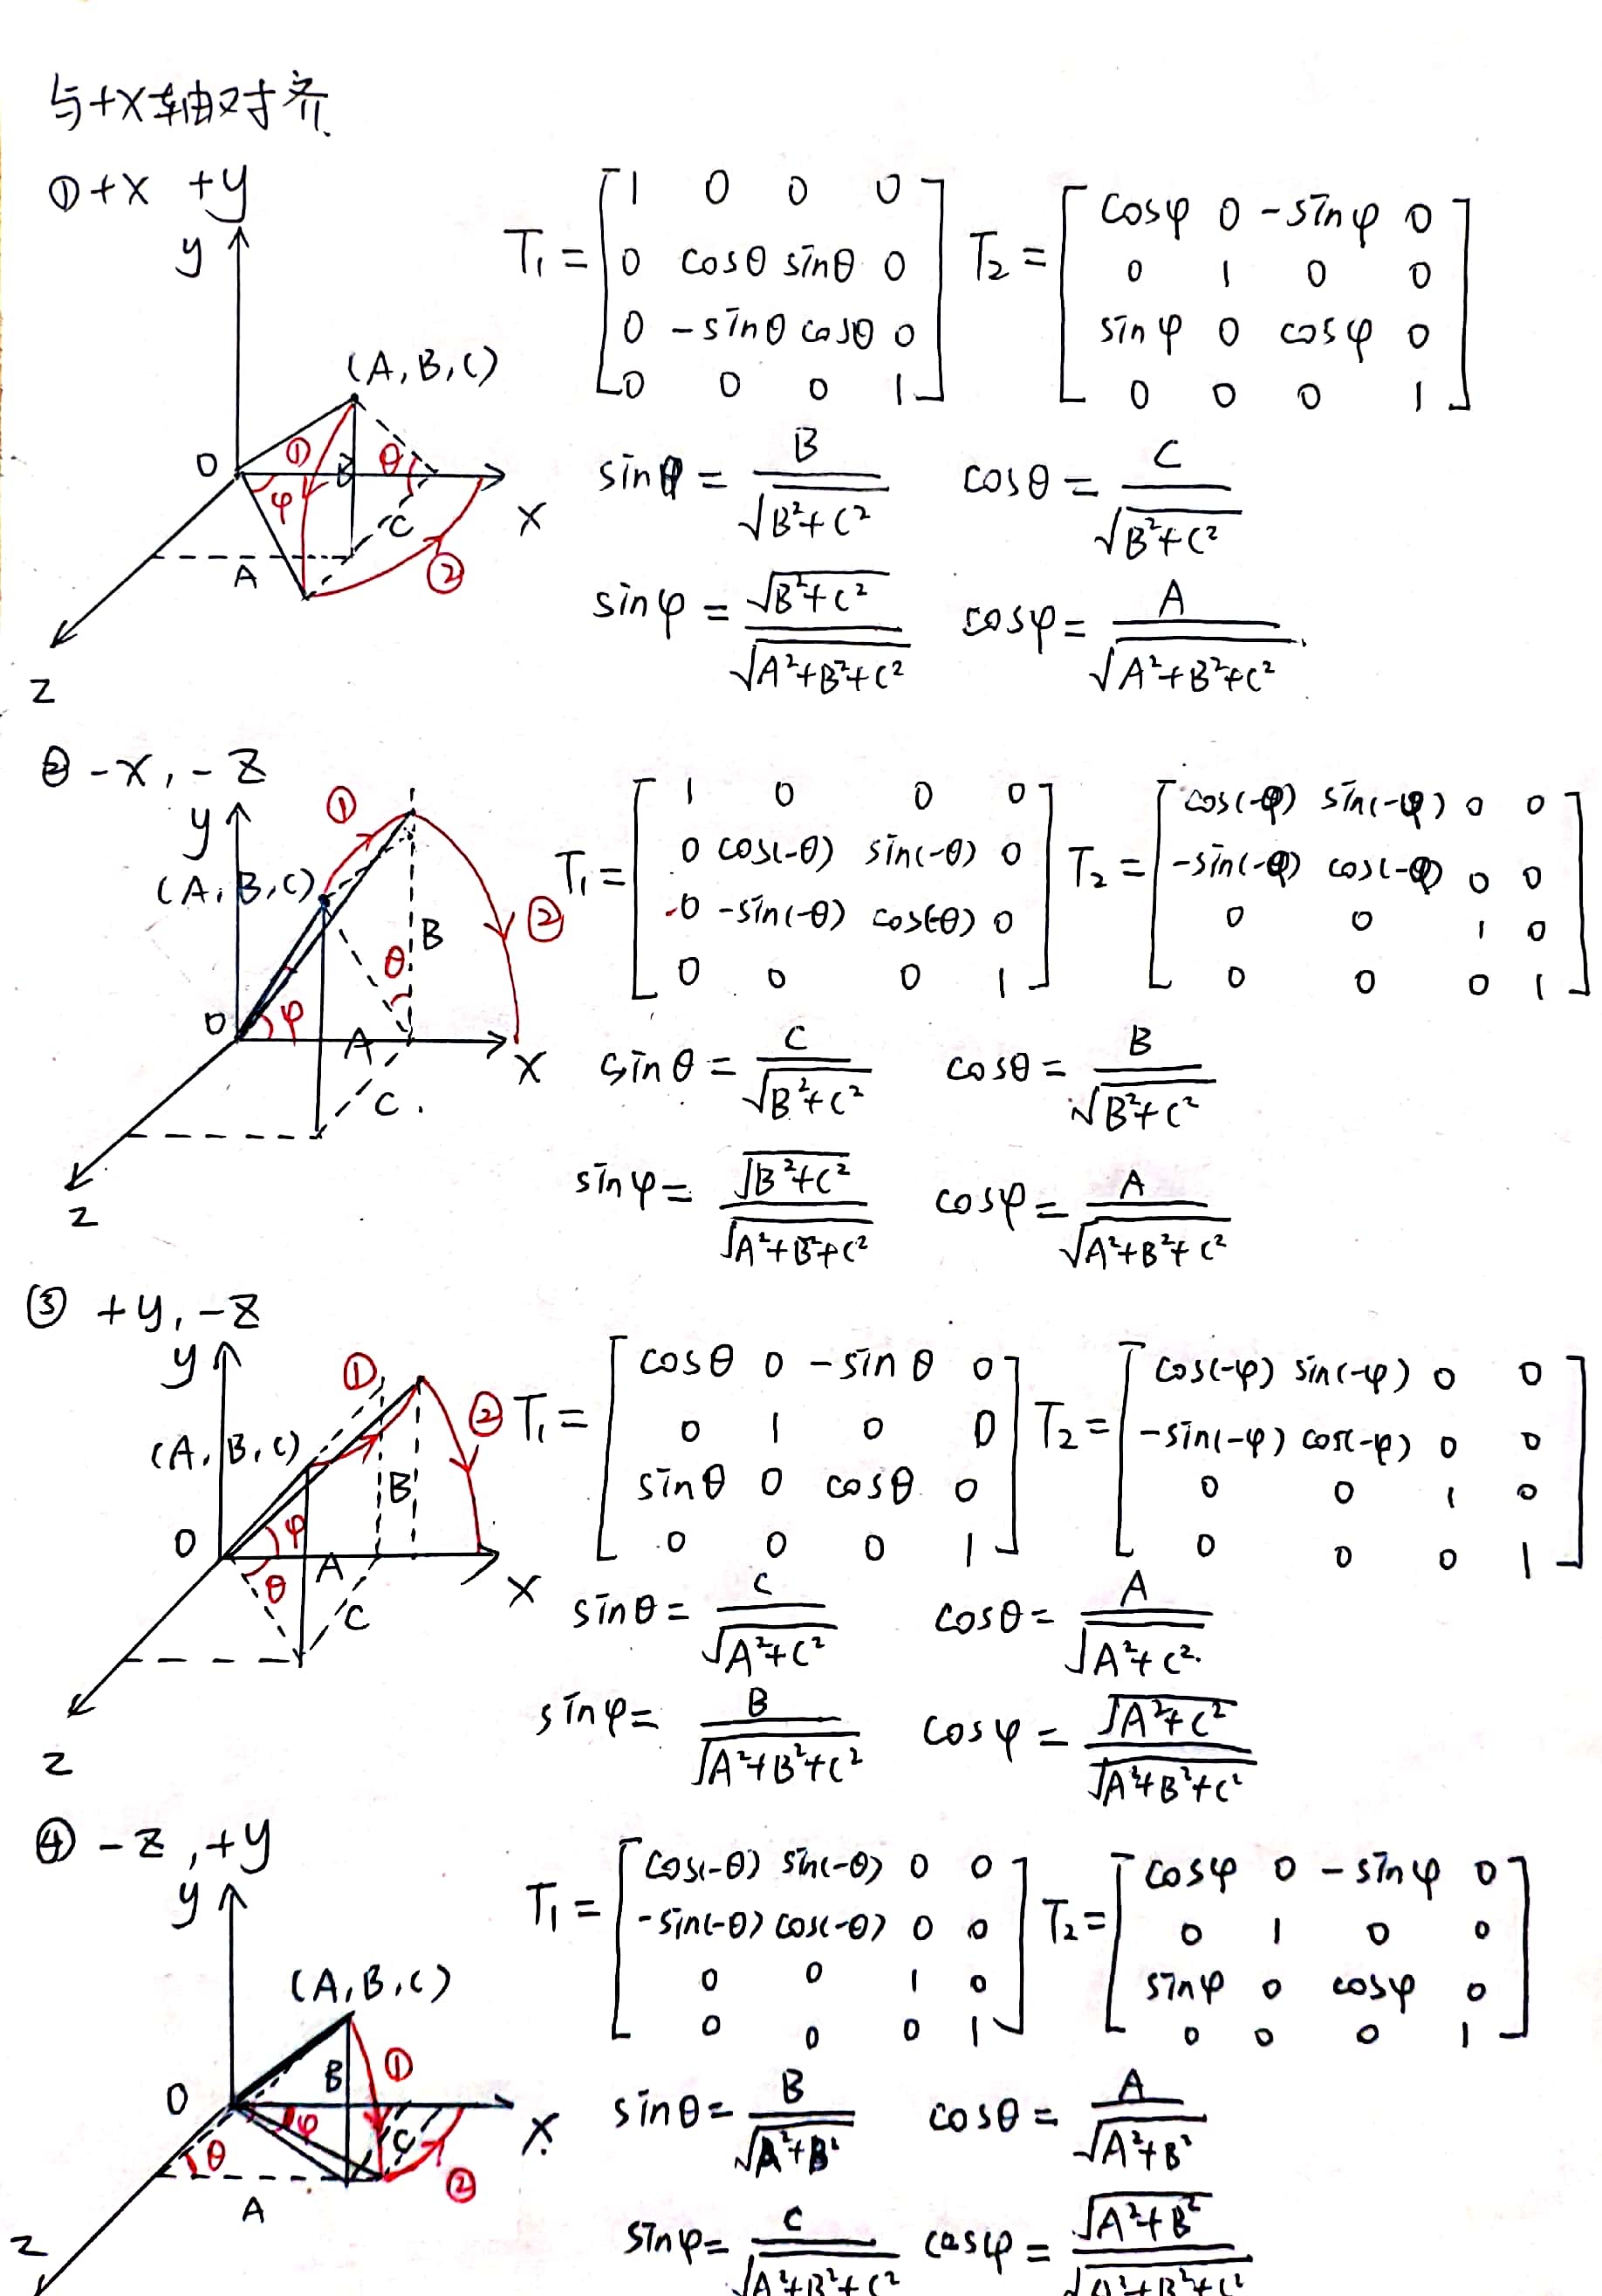 与+X轴对齐
① +X +y
y
(A,B,C)
O ① B θ
φ C X
A ②
Z
T₁ = [1 0 0 0
0 cosθ sinθ 0
0 -sinθ cosθ 0
0 0 0 1]
T₂ = [cosφ 0 -sinφ 0
0 1 0 0
sinφ 0 cosφ 0
0 0 0 1]
sinθ = B/√(B²+C²) cosθ = C/√(B²+C²)
sinφ = √(B²+C²)/√(A²+B²+C²) cosφ = A/√(A²+B²+C²)
② -X, -Z
y ①
(A,B,C)
B ②
θ
O φ A X
C
Z
T₁ = [1 0 0 0
0 cos(-θ) sin(-θ) 0
0 -sin(-θ) cos(-θ) 0
0 0 0 1]
T₂ = [cos(-φ) sin(-φ) 0 0
-sin(-φ) cos(-φ) 0 0
0 0 1 0
0 0 0 1]
sinθ = C/√(B²+C²) cosθ = B/√(B²+C²)
sinφ = √(B²+C²)/√(A²+B²+C²) cosφ = A/√(A²+B²+C²)
③ +y, -Z
y ①
②
(A,B,C)
B
O φ A X
θ C
Z
T₁ = [cosθ 0 -sinθ 0
0 1 0 0
sinθ 0 cosθ 0
0 0 0 1]
T₂ = [cos(-φ) sin(-φ) 0 0
-sin(-φ) cos(-φ) 0 0
0 0 1 0
0 0 0 1]
sinθ = C/√(A²+C²) cosθ = A/√(A²+C²)
sinφ = B/√(A²+B²+C²) cosφ = √(A²+C²)/√(A²+B²+C²)
④ -Z, +y
y
(A,B,C)
B ①
O φ C X
θ
A ②
Z
T₁ = [cos(-θ) sin(-θ) 0 0
-sin(-θ) cos(-θ) 0 0
0 0 1 0
0 0 0 1]
T₂ = [cosφ 0 -sinφ 0
0 1 0 0
sinφ 0 cosφ 0
0 0 0 1]
sinθ = B/√(A²+B²) cosθ = A/√(A²+B²)
sinφ = C/√(A²+B²+C²) cosφ = √(A²+B²)/√(A²+B²+C²)